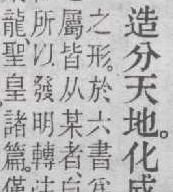 造分天地。化成
之形。於六書
屬皆从某者
所以發明轉注
龍聖皇諸篇。僅